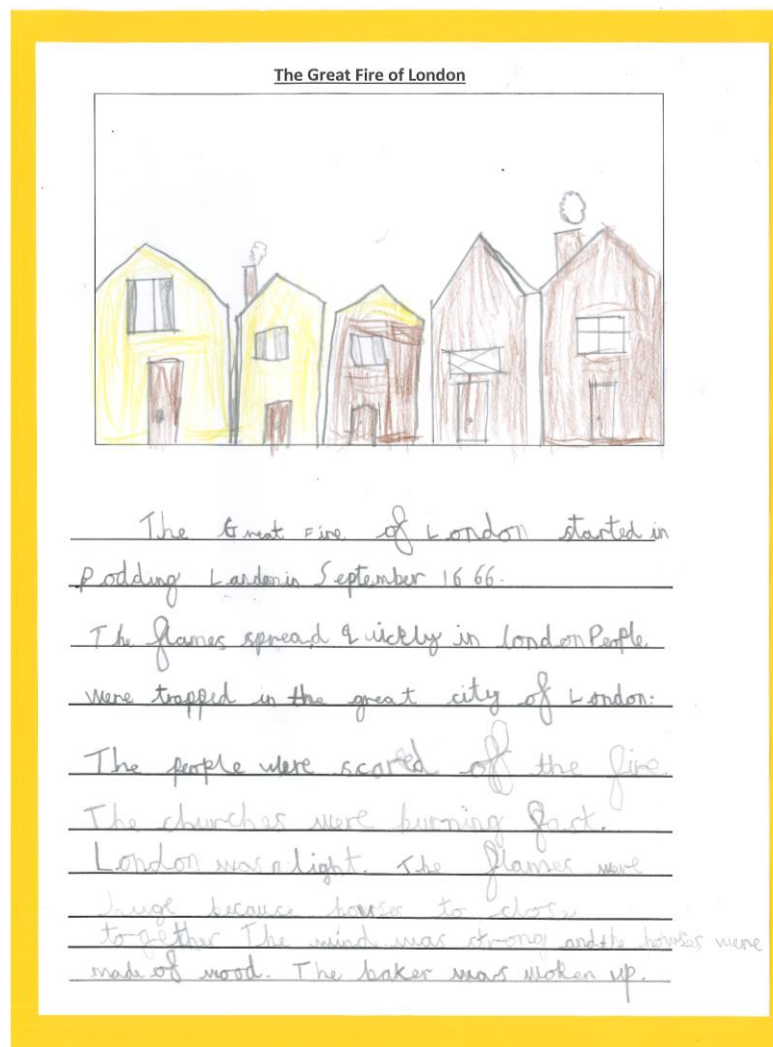 The Great Fire of London
The Great Fire of London started in
Podding London in September 1666.
The flames spread quickly in london People
were trapped in the great city of London.
The people were scared of the fire.
The churches were burning fast.
London was alight. The flames were
huge because houses to close
together The wind was strong and the houses were
made of wood. The baker was woken up.